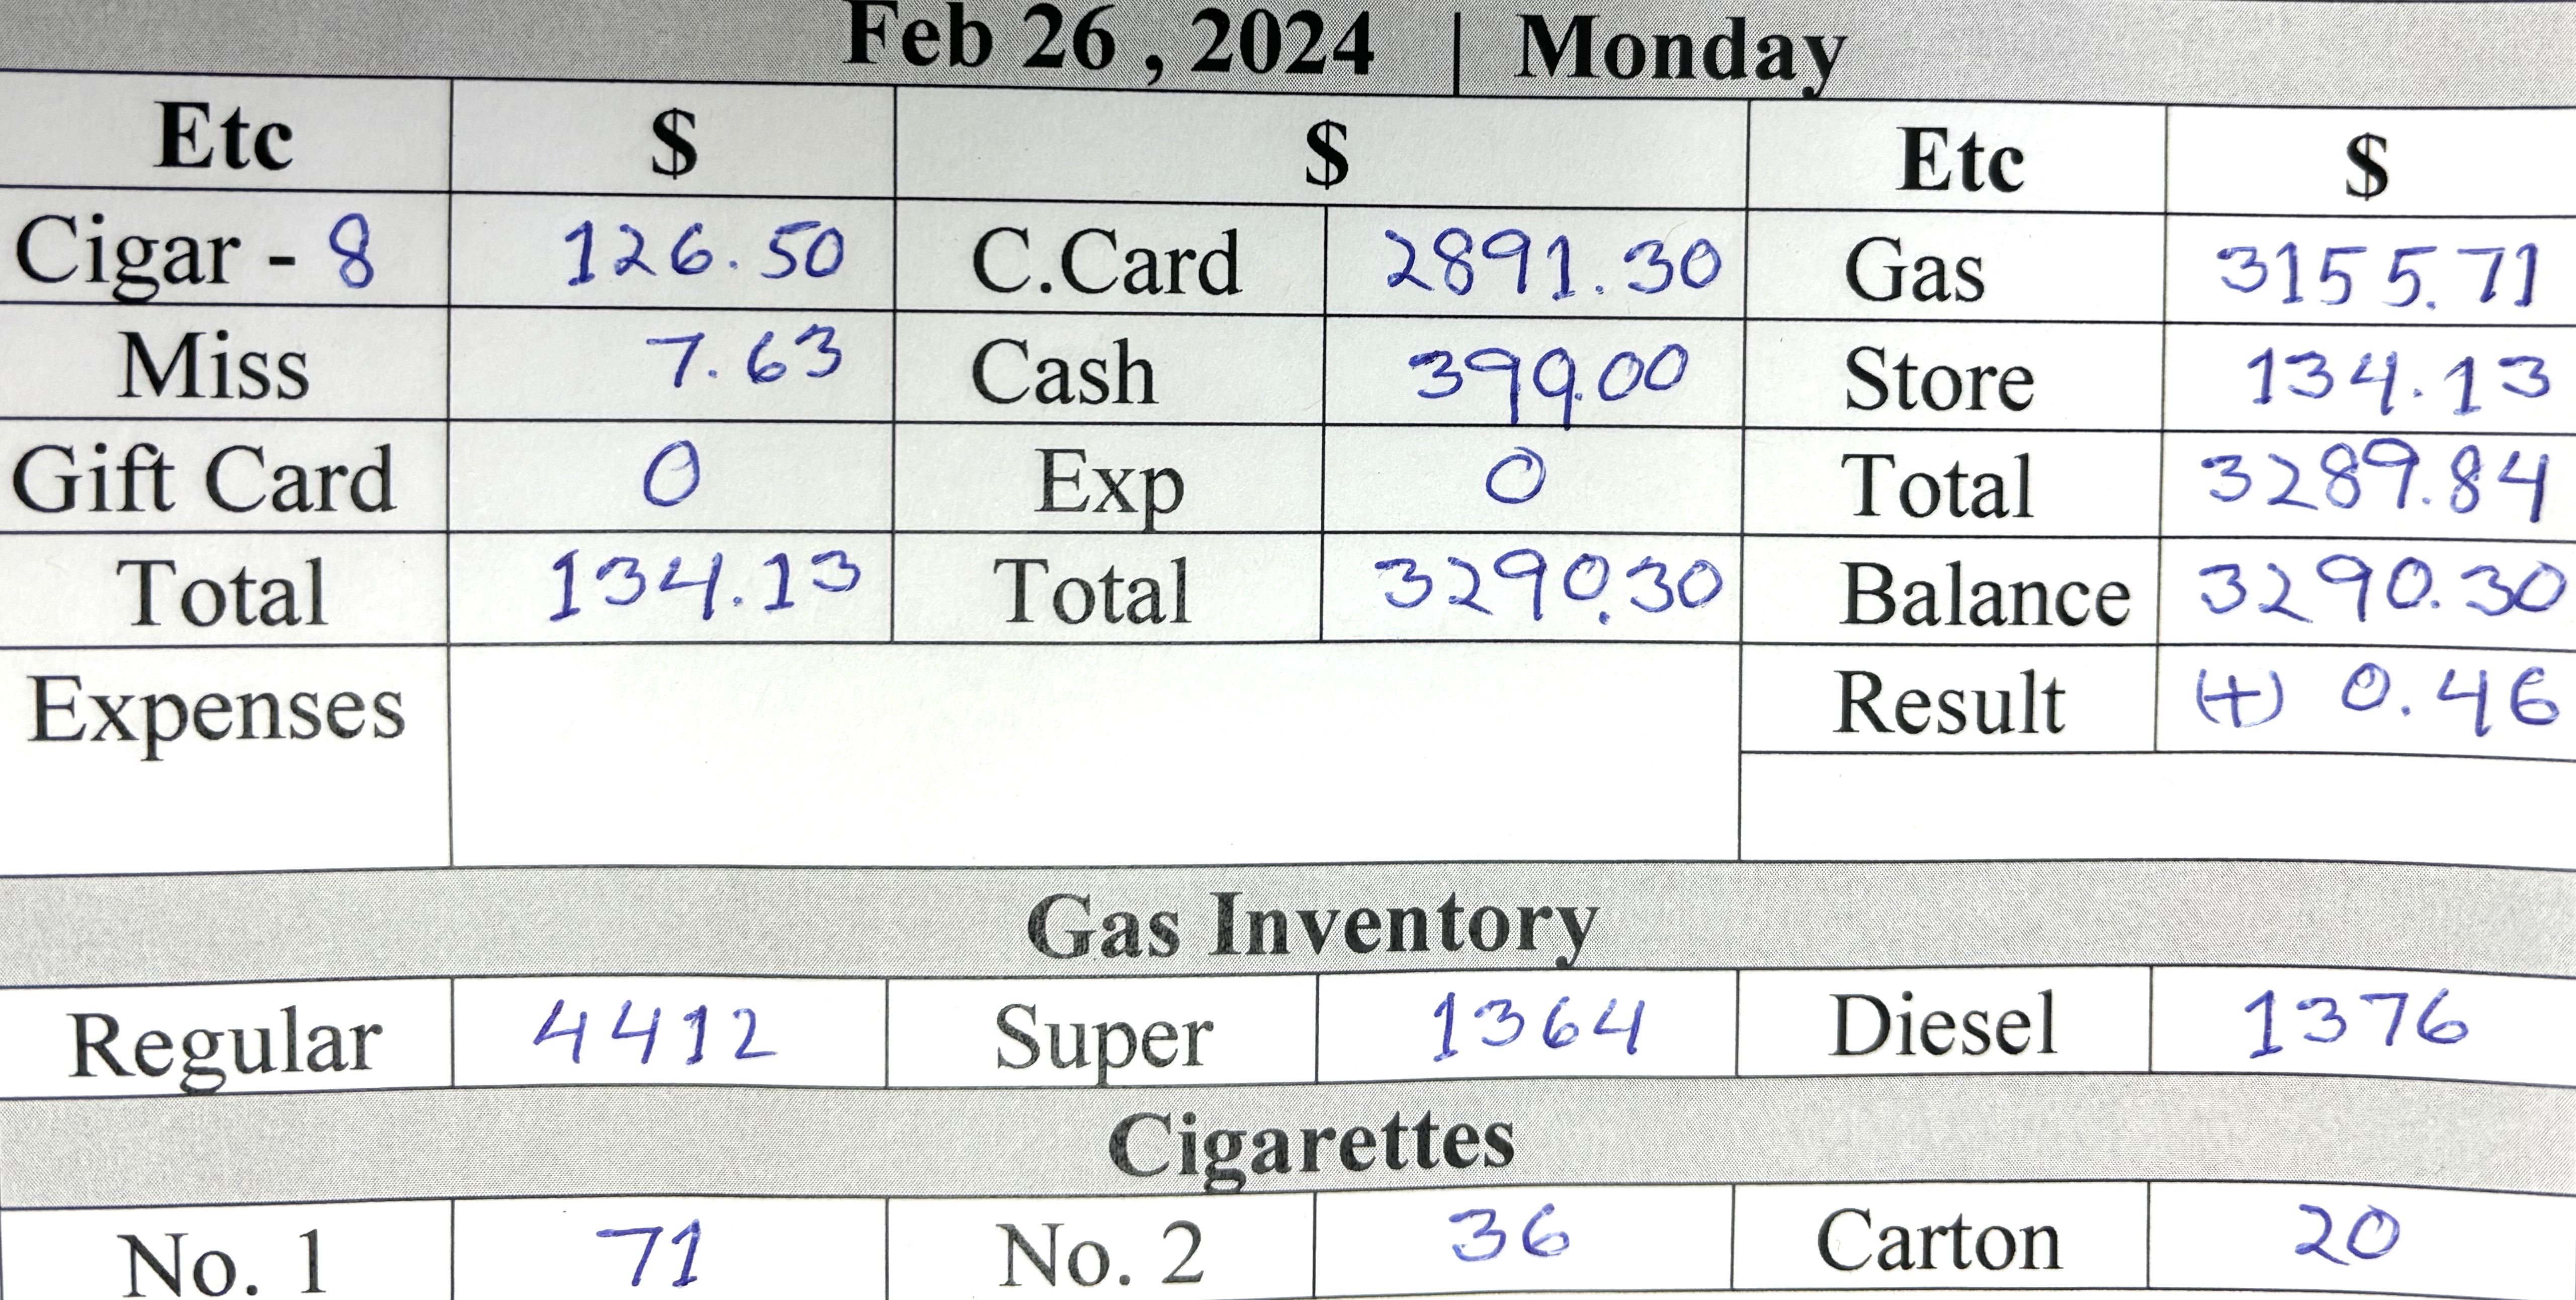 Feb 26 , 2024 | Monday
Etc $ $ Etc $
Cigar - 8 126.50 C.Card 2891.30 Gas 3155.71
Miss 7.63 Cash 399.00 Store 134.13
Gift Card 0 Exp 0 Total 3289.84
Total 134.13 Total 3290.30 Balance 3290.30
Expenses Result (+) 0.46
Gas Inventory
Regular 4412 Super 1364 Diesel 1376
Cigarettes
No. 1 71 No. 2 36 Carton 20